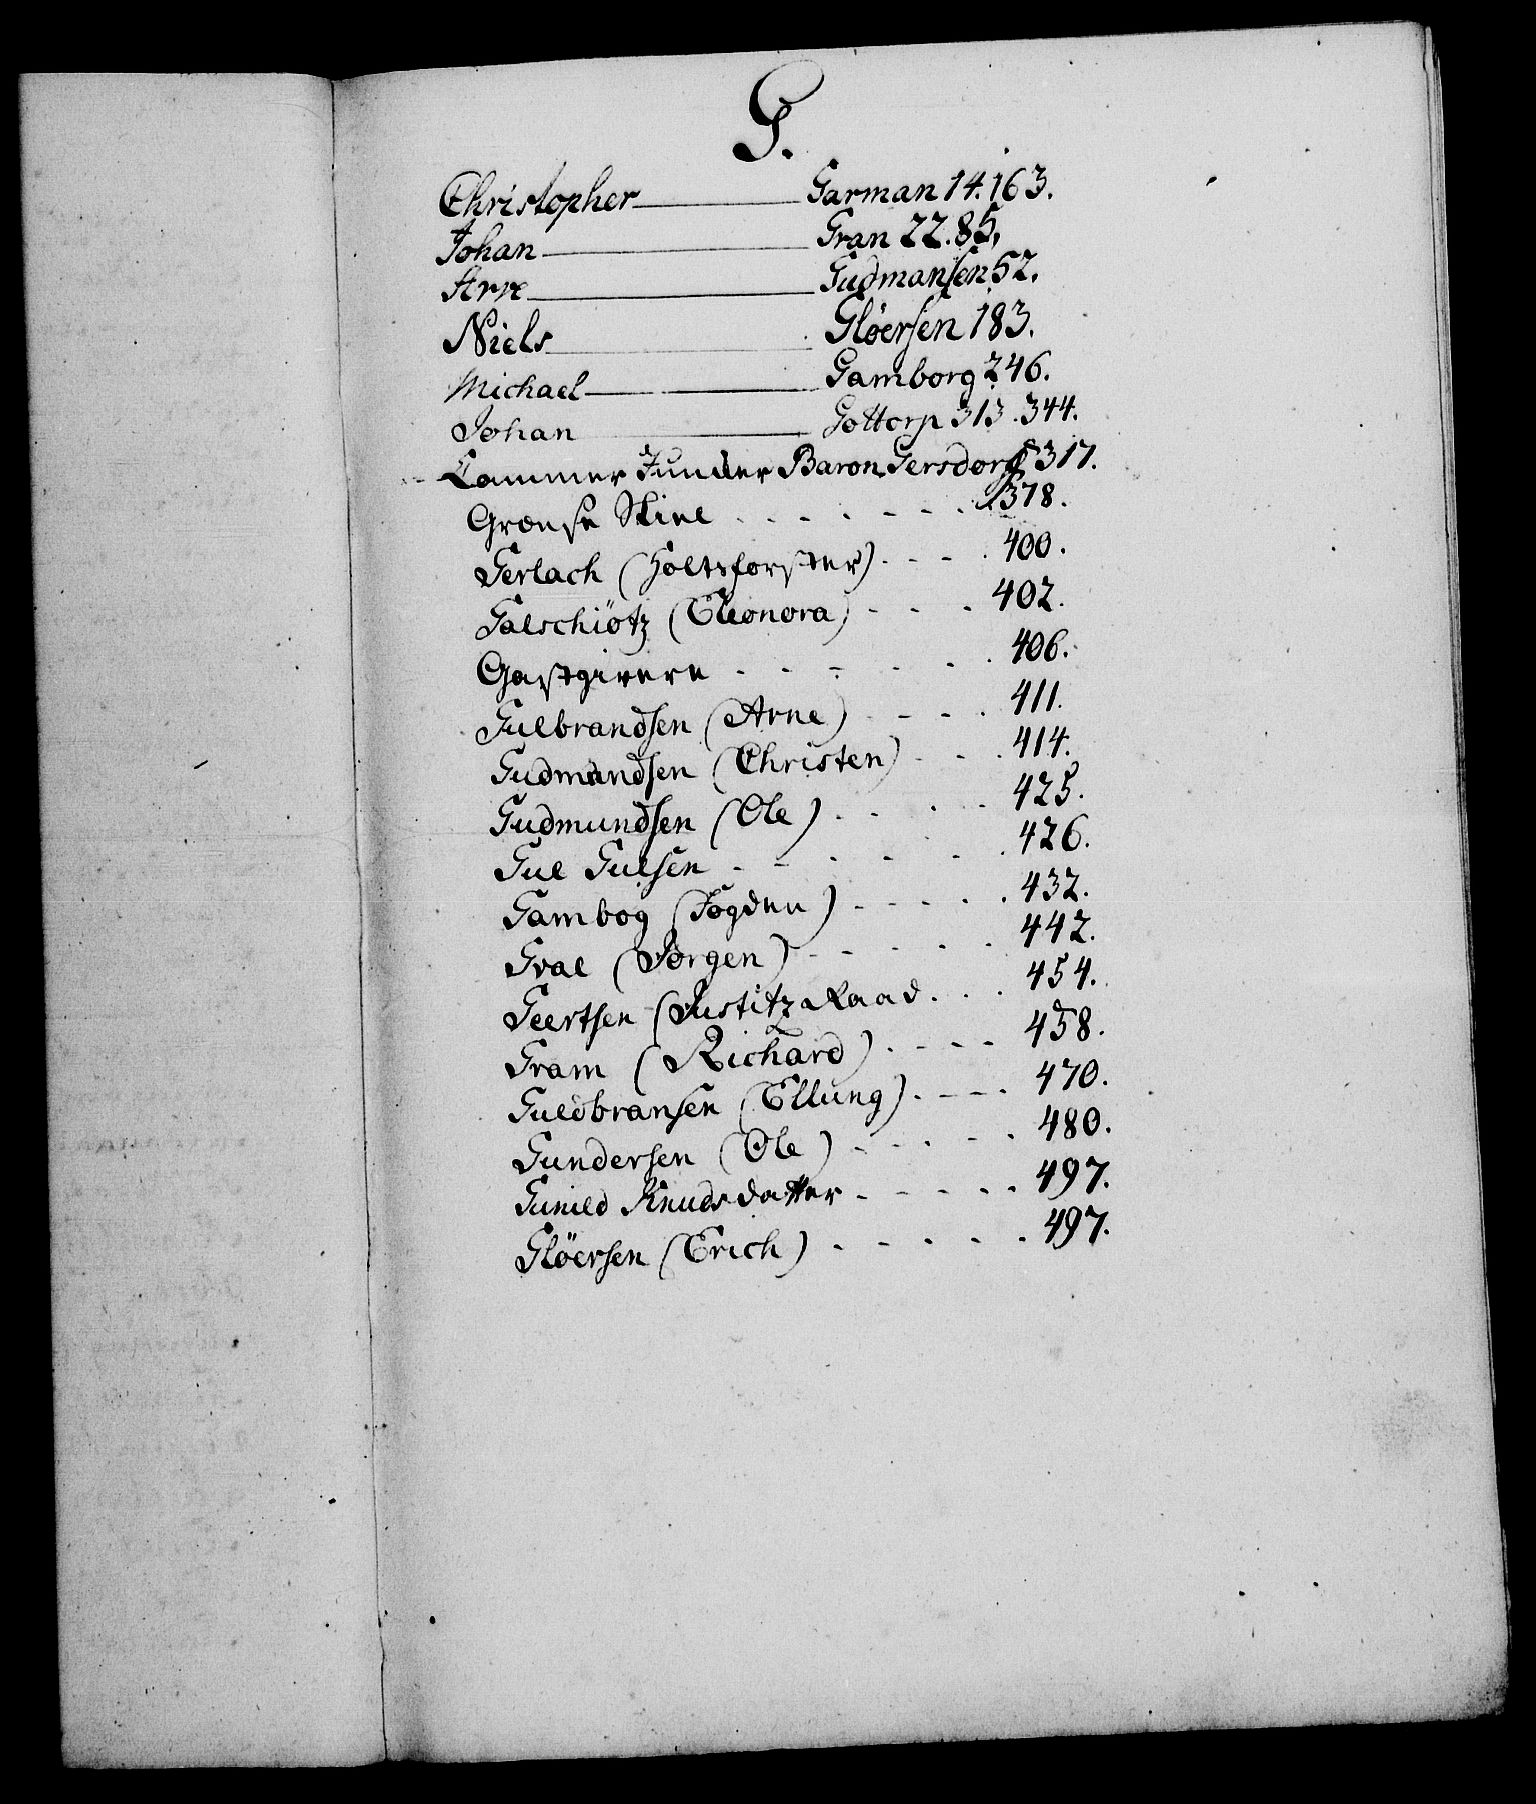 G.
Christopher Garman 14. 163.
Johan Gran 22. 85.
Arve Gudmansen 52.
Niels Gløersen 183.
Michael Gamborg 246.
Johan Gottorp 313. 344.
Cammer Juncker Baron Gersdorf 317.
Grænse Skiel 378.
Gerlach (Holtzforster) 400.
Galschiötz (Eleonora) 402.
Gastgivere 406.
Gulbrandsen (Arne) 411.
Gudmundsen (Christen) 414.
Gudmundsen (Ole) 425.
Gul Gulsen 426.
Gambog (Fogden) 432.
Gral (Jørgen) 442.
Geertsen (Justitz Raad 454.
Gram (Richard) 458.
Guldbransen (Ellung) 470.
Gundersen (Ole) 480.
Gunild Knudsdatter 497.
Glöersen (Erich) 497.